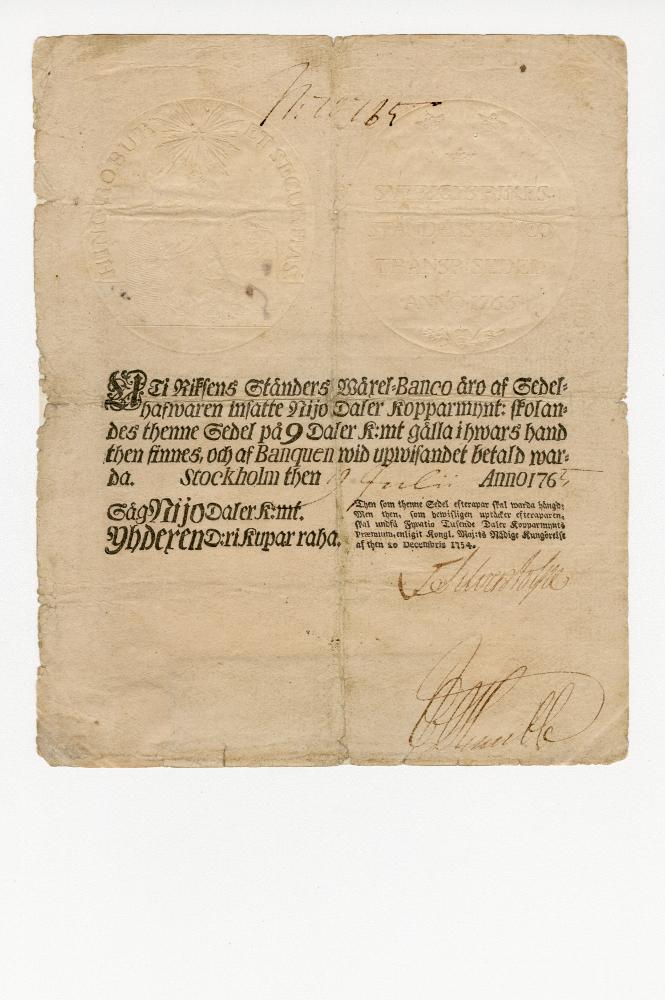 HINC ROBUR ET SECURITAS
SWERIGES RIKES
STÄNDERS BANCO
TRANSP: SEDEL
ANNO 1765
UTi Riksens Ständers Wäxel-Banco äro af Sedel-
hafwaren insatte Nijo Daler Kopparmynt: skolan-
des thenne Sedel på 9 Daler K:mt gälla i hwars hand
then finnes, och af Banquen wid upwisandet betald war-
da. Stockholm then 19 Julii Anno 1765
Säg Nijo Daler K:mt.
Yhdexen D:ri Kupar raha.
Then som thenne Sedel efterapar skal warda hängd;
Men then, som bewisligen uptäcker efteraparen,
skal undfå Fyratio Tusende Daler Kopparmynts
Præmium, enligit Kongl. Maj:ts Nådige Kungörelse
af then 20 Decembris 1754.